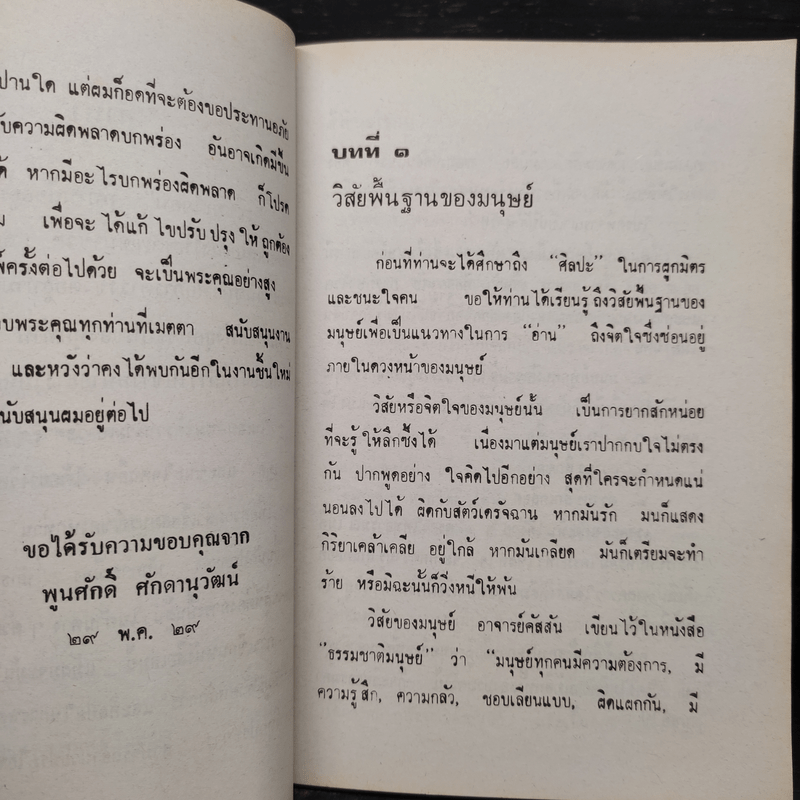 ปานใด แต่ผมก็อดที่จะต้องขอประทานอภัย
ับความผิดพลาดบกพร่อง อันอาจเกิดมีขึ้น
ด้ หากมีอะไรบกพร่องผิดพลาด ก็โปรด
ม เพื่อจะได้แก้ไขปรับปรุงให้ถูกต้อง
พ์ครั้งต่อไปด้วย จะเป็นพระคุณอย่างสูง
อบพระคุณทุกท่านที่เมตตา สนับสนุนงาน
และหวังว่าคงได้พบกันอีกในงานชิ้นใหม่
นับสนุนผมอยู่ต่อไป
ขอได้รับความขอบคุณจาก
พูนศักดิ์ ศักดานุวัฒน์
๒๙ พ.ค. ๒๙
บทที่ ๑
วิสัยพื้นฐานของมนุษย์
ก่อนที่ท่านจะได้ศึกษาถึง “ศิลปะ” ในการผูกมิตร
และชนะใจคน ขอให้ท่านได้เรียนรู้ถึงวิสัยพื้นฐานของ
มนุษย์เพื่อเป็นแนวทางในการ “อ่าน” ถึงจิตใจซึ่งซ่อนอยู่
ภายในดวงหน้าของมนุษย์
วิสัยหรือจิตใจของมนุษย์นั้น เป็นการยากสักหน่อย
ที่จะรู้ให้ลึกซึ้งได้ เนื่องมาแต่มนุษย์เราปากกบใจไม่ตรง
กัน ปากพูดอย่าง ใจคิดไปอีกอย่าง สุดที่ใครจะกำหนดแน่
นอนลงไปได้ ผิดกับสัตว์เดรัจฉาน หากมันรัก มนก็แสดง
กิริยาเคล้าเคลีย อยู่ใกล้ หากมันเกลียด มันก็เตรียมจะทำ
ร้าย หรือมิฉะนั้นก็วิ่งหนีให้พ้น
วิสัยของมนุษย์ อาจารย์คัสสัน เขียนไว้ในหนังสือ
“ธรรมชาติมนุษย์” ว่า “มนุษย์ทุกคนมีความต้องการ, มี
ความรู้สึก, ความกลัว, ชอบเลียนแบบ, ผิดแผกกัน, มี